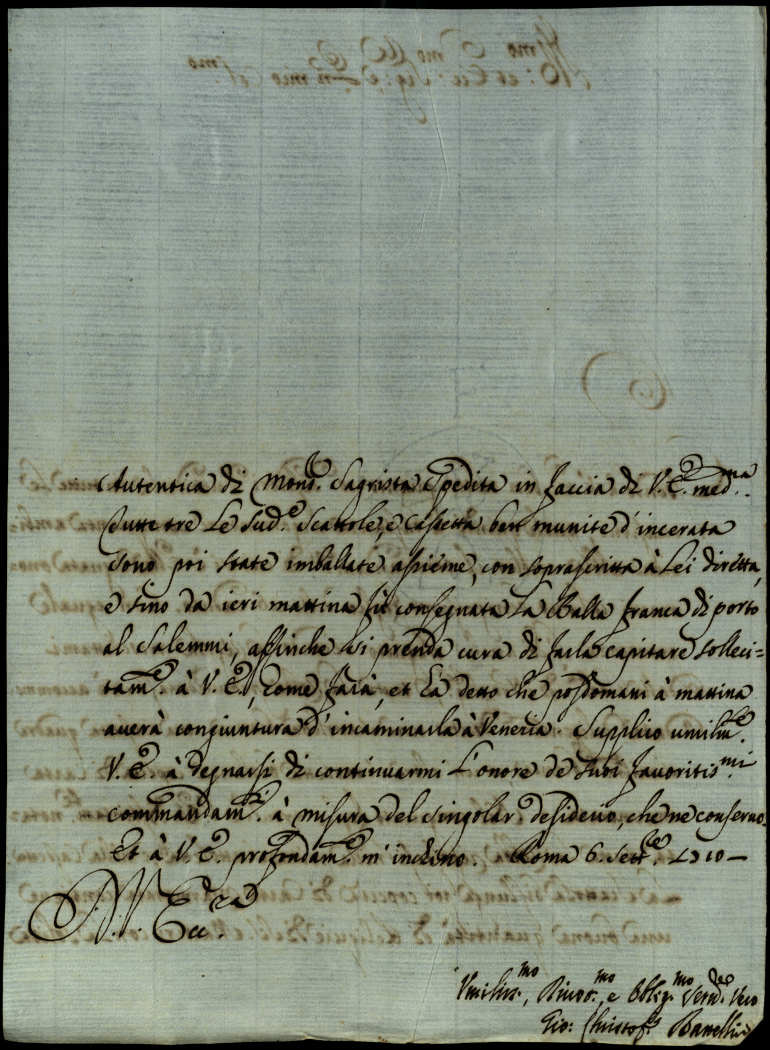 Autentica di Mons.r Sagrista spedita in faccia di V. E. med.ma
Tutte tre Le sud.e Scattole, e Cassetta ben munite d'incerata
sono poi state imballate assieme, con soprascritta à Lei diretta,
e sino da ieri mattina fù consegnata La Balla franca di porto
al Salemmi, affinche si prenda cura di farla capitare solleci=
tam.e à V. E., come farà, et hà detto che posdomani à mattina
averà congiuntura d'incaminarla à Venezia. Supplico umilm.e
V. E. à degnarsi di continuarmi L'onore de suoi favoritis.mi
commandam.ti à misura del singolar desiderio, che ne conservo.
Et à V. E. profondam.e m'inchino. Roma 6. Sett.re
D. V. Ecc.za
Umilis.mo, Divot.mo, e Oblig.mo Serv.re Vero
Gio: Christof.o